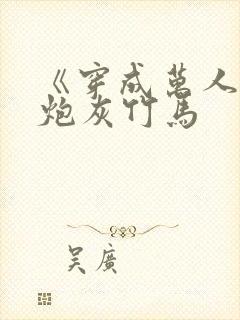 《穿成萬人
炮灰竹馬
吴廣